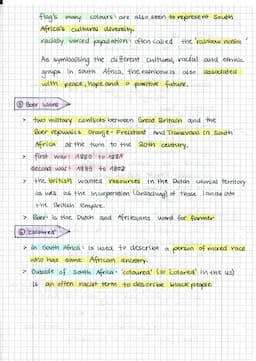 flag's many colours are also seen to represent South
Africa's cultural diversity.
racially mixed population often called the 'rainbow nation'
As symbolising the different cultural, racial and ethnic
groups in South Africa, the rainbow is also associated
with peace, hope and a positive future.
⑤ Boer Wars
> two military conflicts between Great Britain and the
Boer republics Orange-Freistaat and Transvaal in South
Africa at the turn to the 20th century.
> first war: 1880 to 1881
second war: 1899 to 1902
> the british wanted resources in the Dutch colonial territory
as well as the incorporation of those lands into
the British Empire.
> Boer is the Dutch and Afrikaans word for farmer
⑥ 'coloured'
> in South Africa: is used to describe a person of mixed race
who has some African ancestry.
> Outside of South Africa: 'coloured' (or colored' in the US)
is an often racist term to describe black people